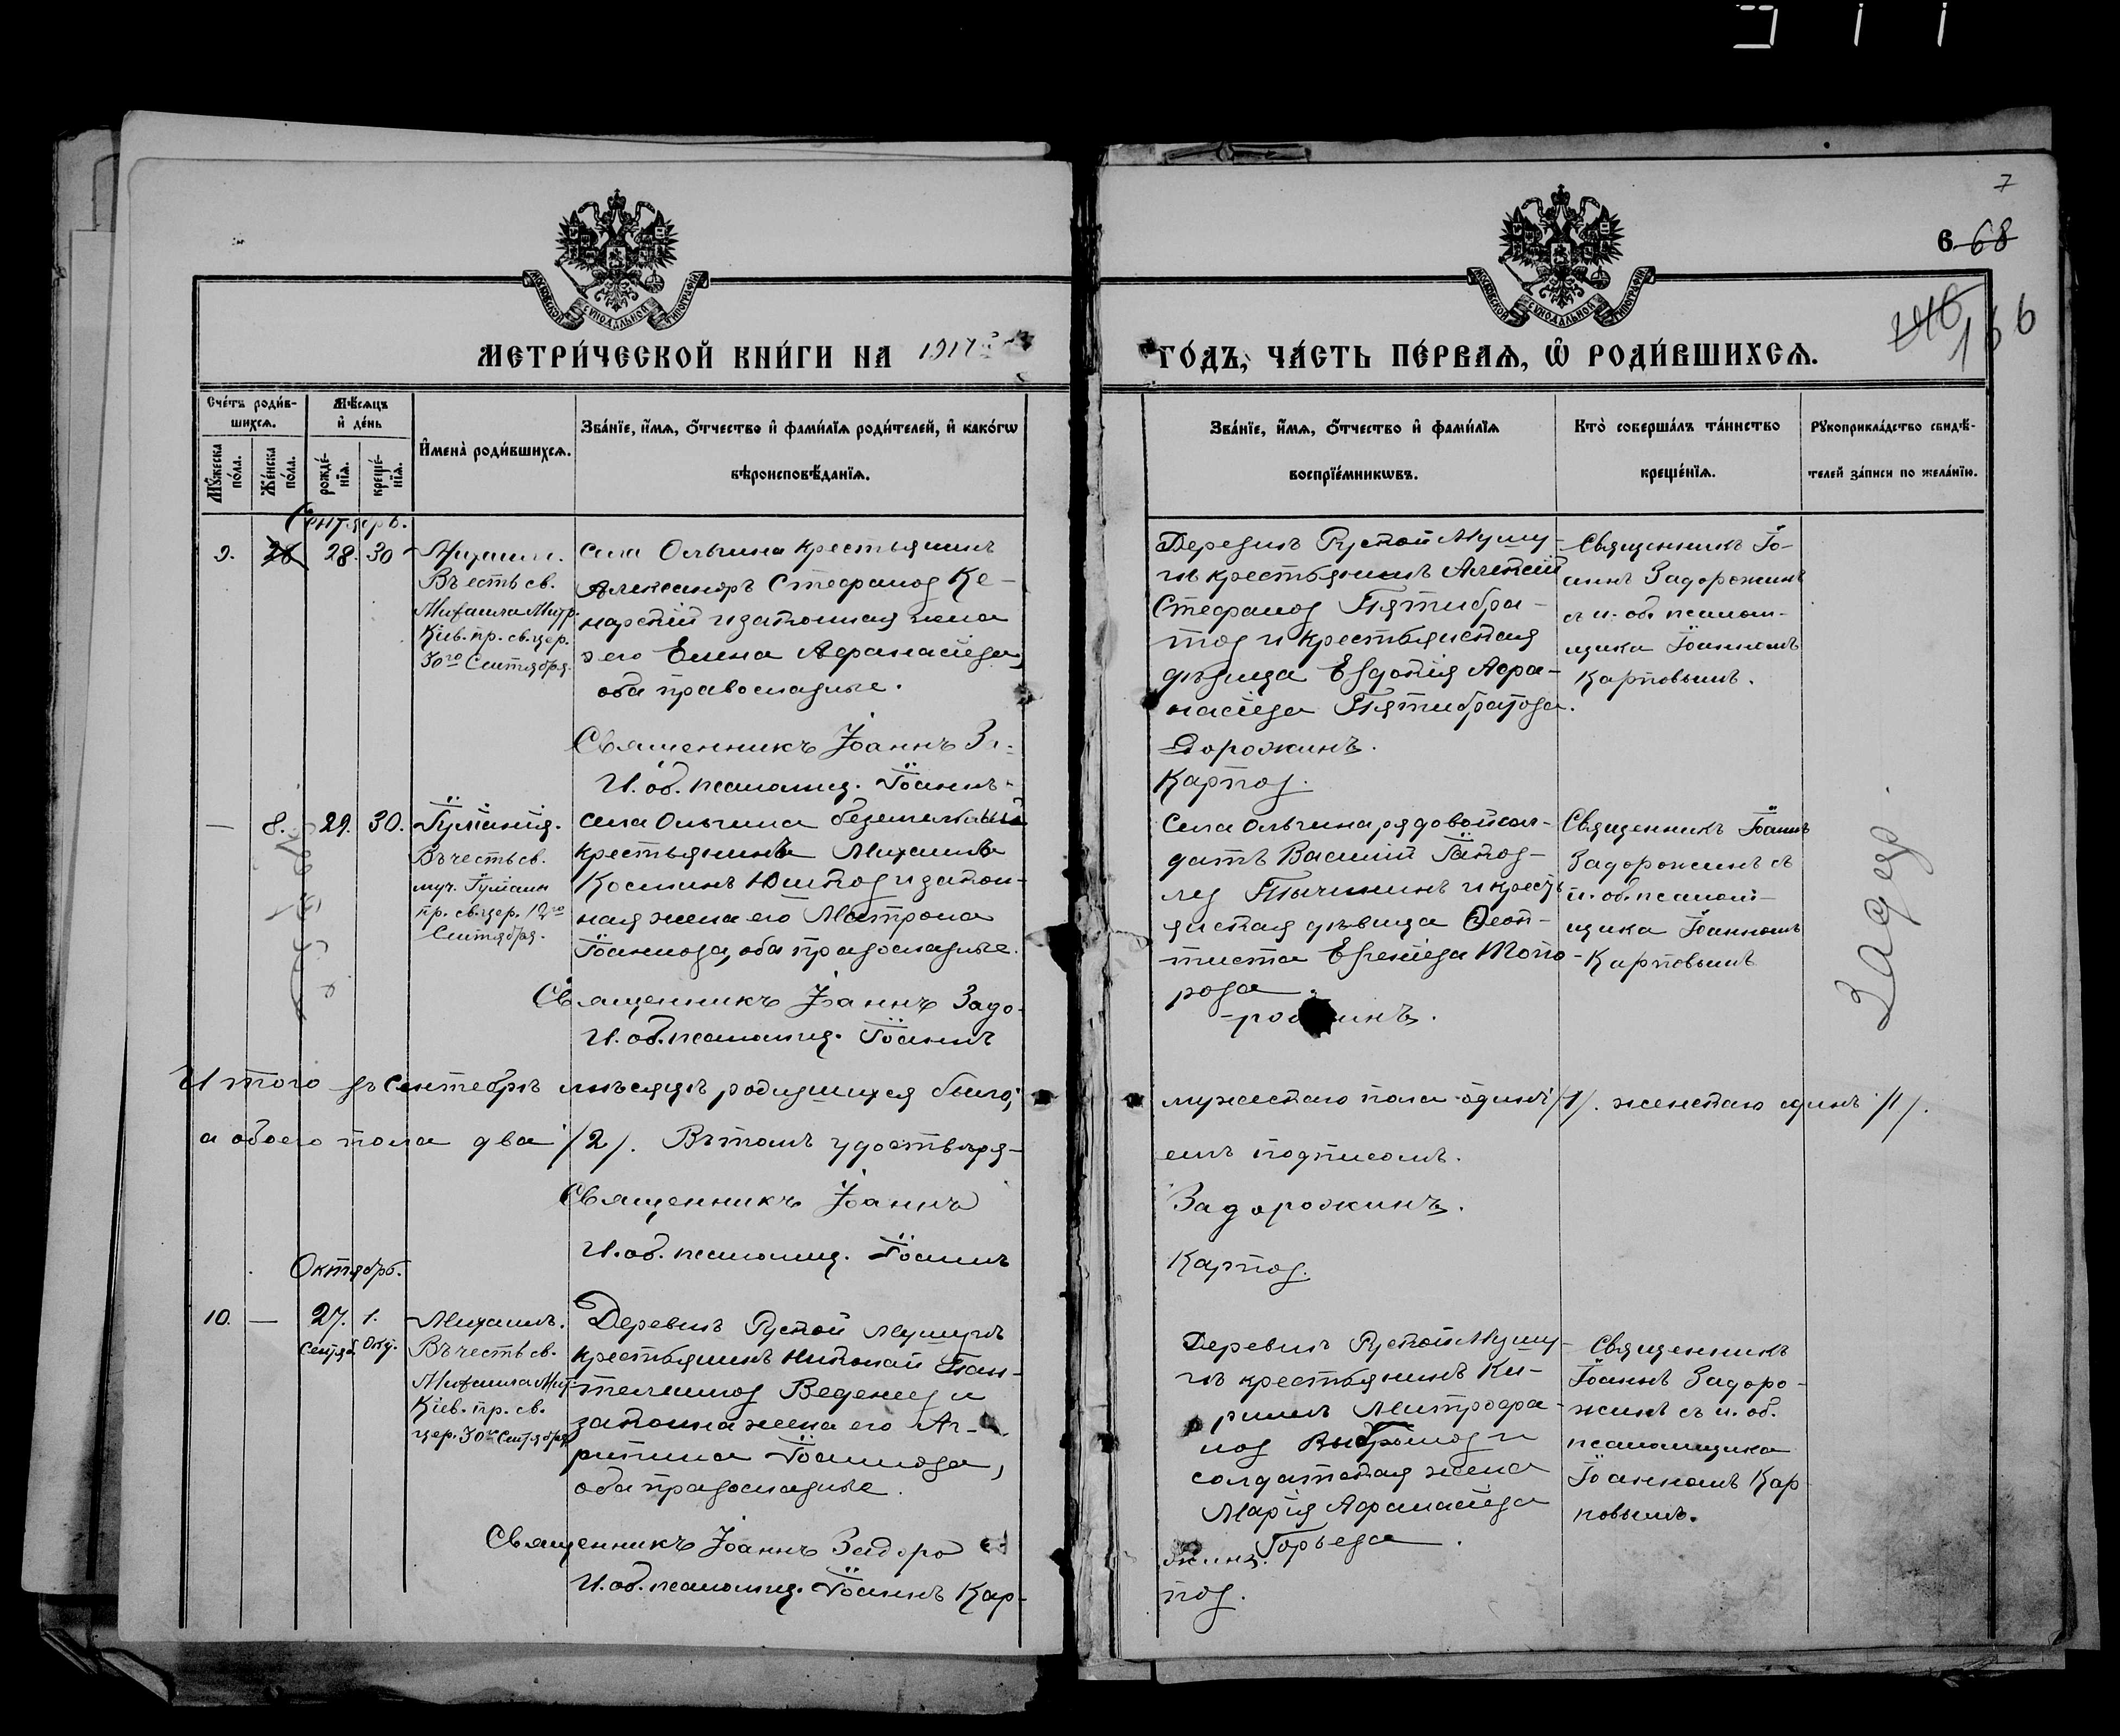 7
6 68
166
МОСКОВСКОЙ СУНОДАЛЬНОЙ ТИПОГРАФІИ
МОСКОВСКОЙ СУНОДАЛЬНОЙ ТИПОГРАФІИ
МЕТРИ́ЧЕСКОЙ КНИ́ГИ НА 1917
ГО́ДЪ, ЧА́СТЬ ПЕ́РВАЯ, Ѡ҆ РОДИ́ВШИХСЯ.
Сче́тъ роди́в-
шихся.
Мѣ́сяцъ
и҆ де́нь
Му́жеска по́ла.
Же́нска по́ла.
рожде́-
нїя.
креще́-
нїя.
И҆мена̀ роди́вшихся.
Зва́нїе, и҆́мя, о҆́тчество и҆ фами́лїя роди́телей, и҆ како́гѡ
вѣроисповѣ́данїя.
Зва́нїе, и҆́мя, о҆́тчество и҆ фами́лїя
воспрїе́мникѡвъ.
Кто̀ соверша́лъ та́инство
креще́нїя.
Рꙋкоприкла́дство свидѣ́-
телей за́писи по жела́нїю.
Сентябрь.
9.
28. 30
Михаилъ.
Въ честь св.
Михаила Митр.
Кіев. пр. св. цер.
30го Сентября.
села Ольгина крестьянинъ
Александръ Стефановъ Ке-
нарскій и законная жена
его Елена Афанасіева,
оба православные.
Священникъ Іоаннъ За-
И. об. псаломщ. Іоаннъ
Деревни Густой Мушу-
гъ крестьянинъ Алексій
Стефановъ Пятибра-
товъ и крестьянская
дѣвица Евдокія Афа-
насіева Пятибратова.
дорожинъ.
Карповъ.
Священникъ Іо-
аннъ Задорожинъ
съ и. об. псалом-
щика Іоанномъ
Карповымъ.
— 8. 29. 30.
Іуліанія.
Въ честь св.
муч. Іуліан
пр. св. цер.
Сентября.
села Ольгина
крестьянинъ Михаилъ
Косминъ и закон-
ная жена его Матрона
Іоаннова, оба православные.
Священникъ Іоаннъ Задо-
И. об. псаломщ. Іоаннъ
Села Ольгина рядовой сол-
датъ Василій Іаков-
левъ Тычининъ и кресть
янская дѣвица Феок-
тиста Евгеніева Топо
рова.
-рожинъ.
Священникъ Іоаннъ
Задорожинъ съ
и. об. псалом-
щика Іоанномъ
Карповымъ
Итого въ сентябрѣ мѣсяцѣ родившихся было;
мужескаго пола одинъ /1/. женскаго одинъ /1/.
а обоего пола два /2/. Въ томъ удостовѣря-
емъ подписомъ.
Священникъ Іоаннъ
Задорожинъ.
И. об. псаломщ. Іоаннъ
Карповъ.
Октябрь.
10. — 27. 1.
Сентяб. Окт.
Михаилъ.
Въ честь св.
Михаила Мит.
Кіев. пр. св.
цер. 30го Сентября
Деревни Густой Мушугъ
крестьянинъ Николай Пан-
телеимовъ Веденевъ и
законна жена его Аг-
рипина Іоаннова,
оба православные.
Священникъ Іоаннъ Задоро
И. об. псаломщ. Іоаннъ Кар-
Деревни Густой Мушу-
гъ крестьянинъ Ки-
риллъ Митрофа-
новъ и
солдатская жена
Марія Афанасіева
Горьева.
жинъ.
повъ.
Священникъ
Іоаннъ Задоро-
жинъ съ и. об.
псаломщика
Іоанномъ Кар
повымъ.